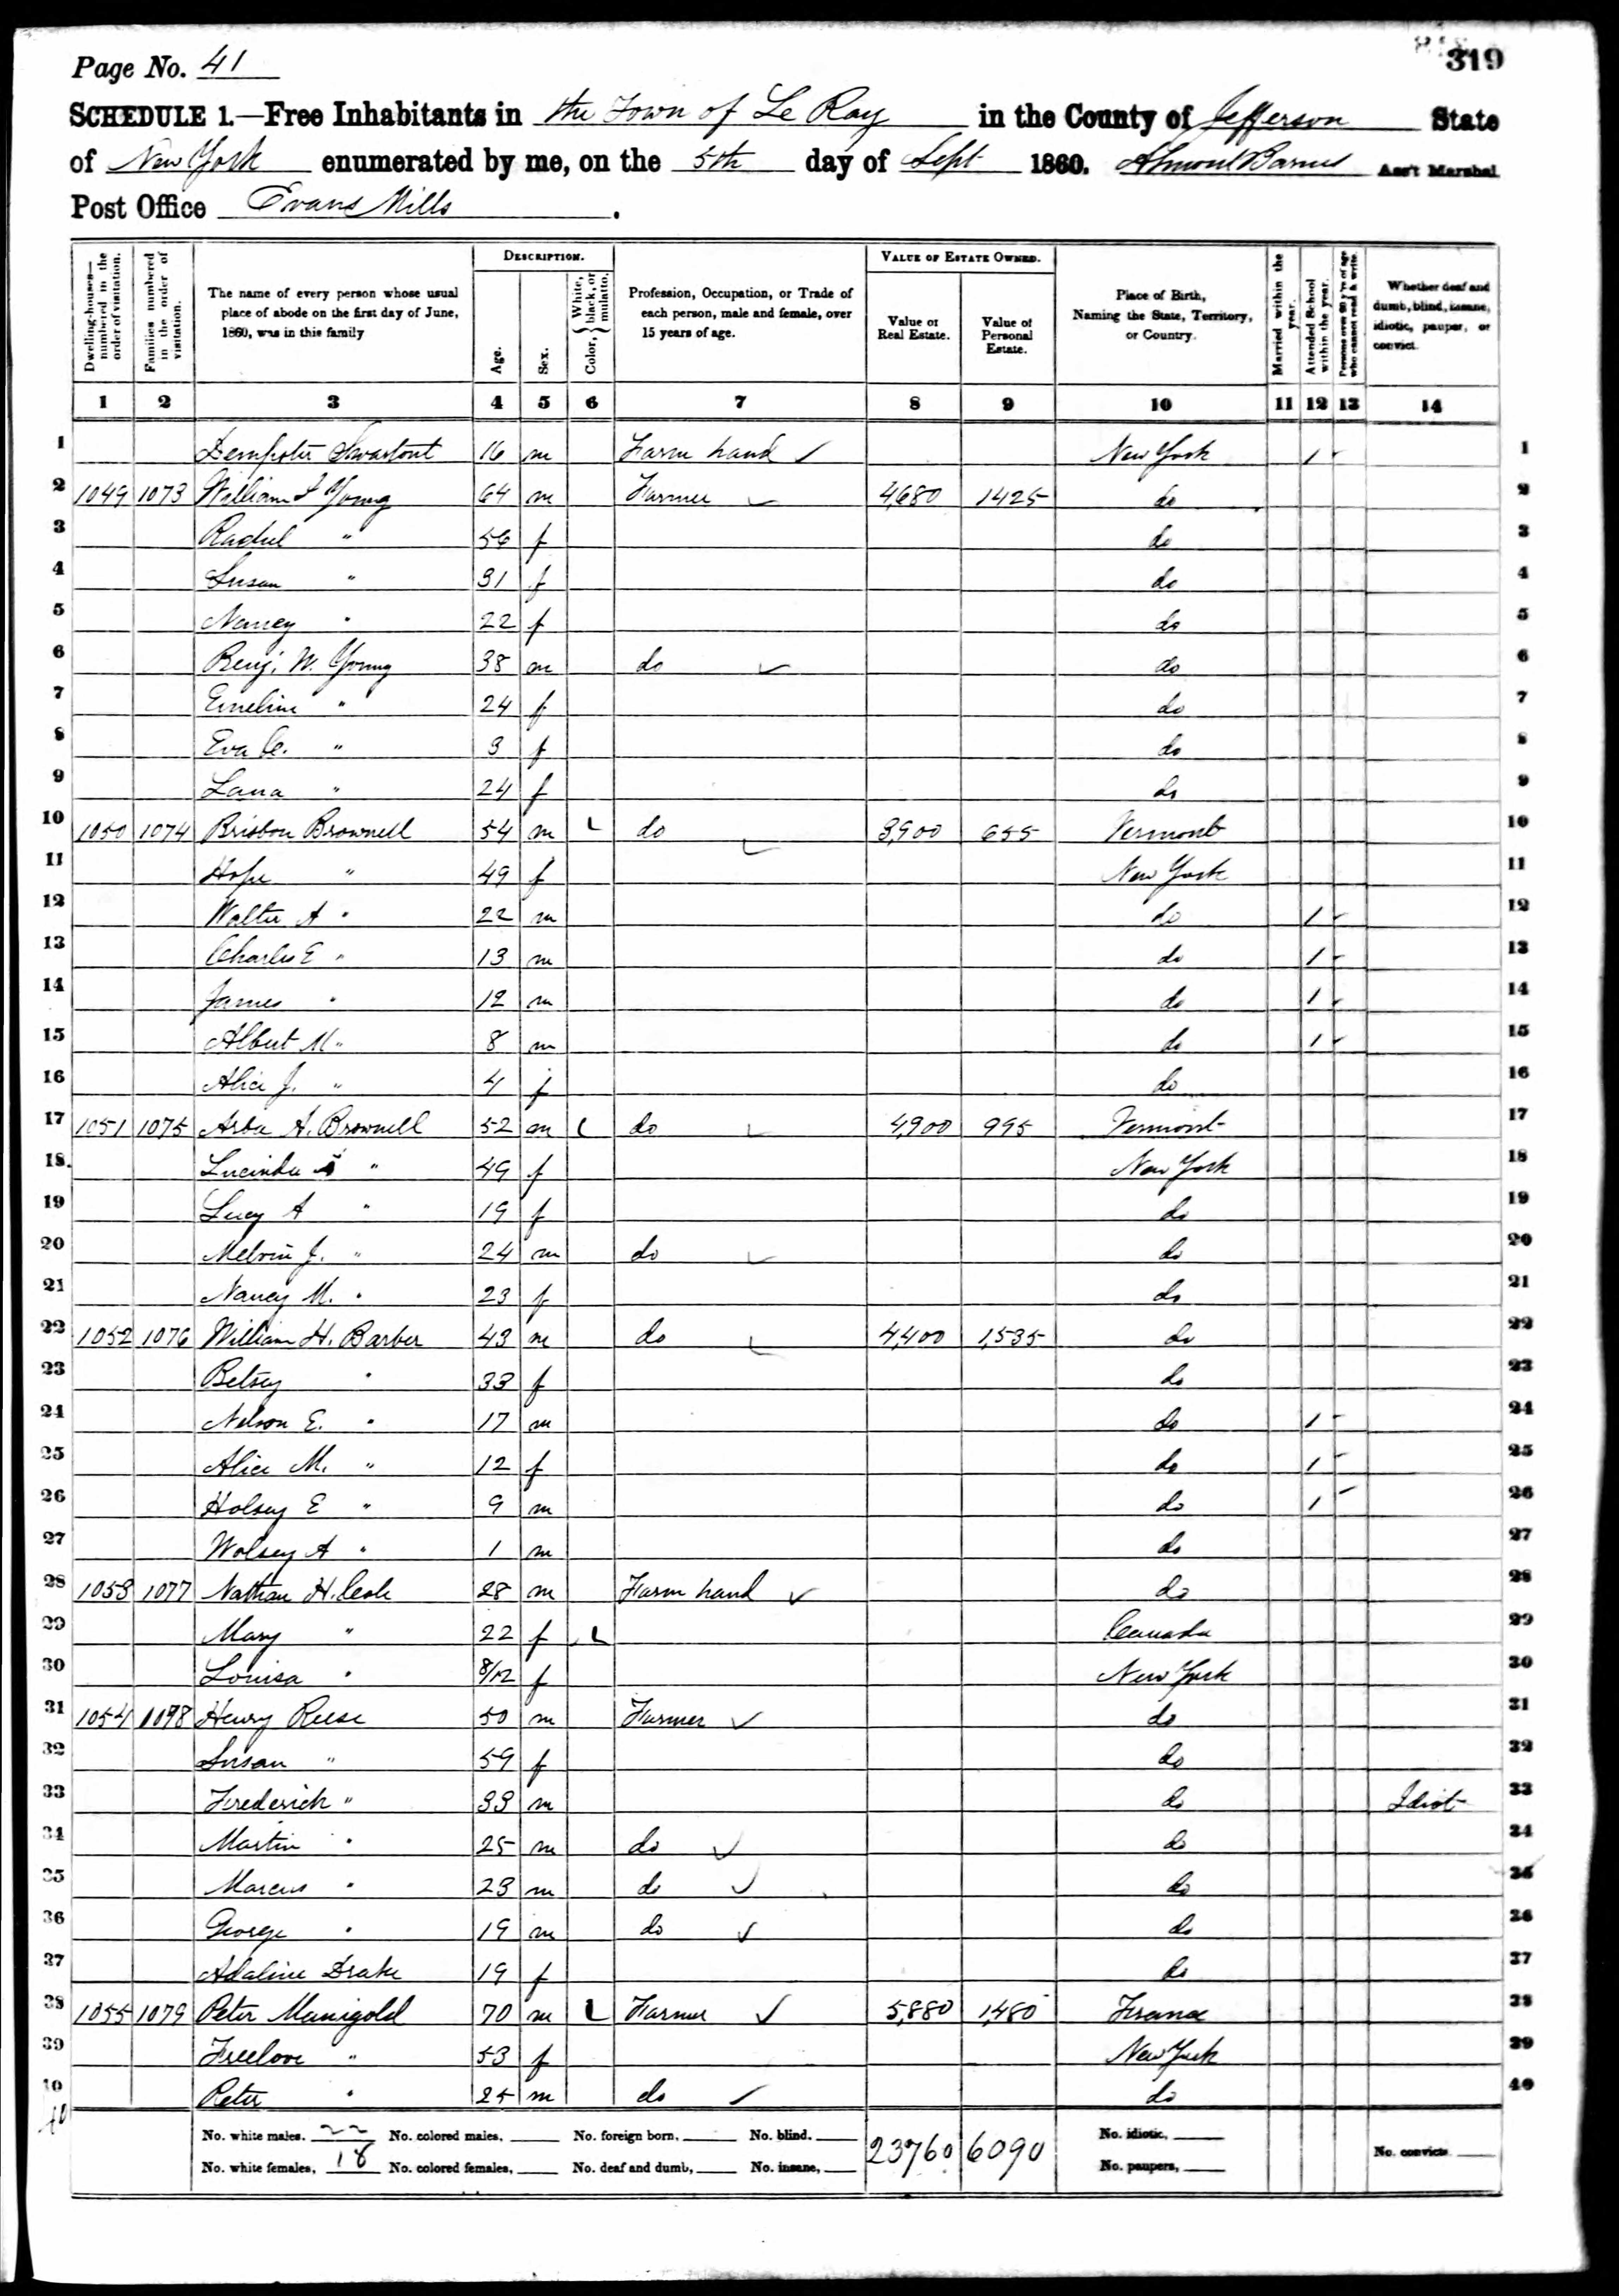 Page No. 41
319
SCHEDULE 1.—Free Inhabitants in the Town of Le Ray in the County of Jefferson State
of New York enumerated by me, on the 5th day of Sept 1860. Almont Barnes Ass't Marshal
Post Office Evans Mills.
Dwelling-houses—numbered in the order of visitation. Families numbered in the order of visitation. The name of every person whose usual place of abode on the first day of June, 1860, was in this family DESCRIPTION. Age. Sex. Color, White, black, or mulatto. Profession, Occupation, or Trade of each person, male and female, over 15 years of age. VALUE OF ESTATE OWNED. Value of Real Estate. Value of Personal Estate. Place of Birth, Naming the State, Territory, or Country. Married within the year. Attended School within the year. Persons over 20 y'rs of age who cannot read & write. Whether deaf and dumb, blind, insane, idiotic, pauper, or convict.
1 2 3 4 5 6 7 8 9 10 11 12 13 14
1 Dempster Swartout 16 m Farm hand ✓ New York 1 1
2 1049 1073 William I Young 64 m Farmer 4,680 1425 do 2
3 Rachel " 56 f do 3
4 Susan " 31 f do 4
5 Nancy " 22 f do 5
6 Benj. W. Young 38 m do do 6
7 Emeline " 24 f do 7
8 Eva C. " 3 f do 8
9 Lana " 24 f do 9
10 1050 1074 Brisbon Brownell 54 m do 3,900 655 Vermont 10
11 Hope " 49 f New York 11
12 Walter A " 22 m do 1 12
13 Charles E " 13 m do 1 13
14 James " 12 m do 1 14
15 Albert M " 8 m do 1 15
16 Alice J. " 4 f do 16
17 1051 1075 Arba A. Brownell 52 m do 4,900 995 Vermont 17
18 Lucinda " 49 f New York 18
19 Lucy A " 19 f do 19
20 Melvin J. " 24 m do do 20
21 Nancy M. " 23 f do 21
22 1052 1076 William H. Barber 43 m do 4,400 1,535 do 22
23 Betsey " 33 f do 23
24 Nelson E. " 17 m do 1 24
25 Alice M. " 12 f do 1 25
26 Holsey E " 9 m do 1 26
27 Wolsey A " 1 m do 27
28 1053 1077 Nathan H. Cole 28 m Farm hand ✓ do 28
29 Mary " 22 f Canada 29
30 Louisa " 8/12 f New York 30
31 1054 1078 Henry Reese 50 m Farmer ✓ do 31
32 Susan " 59 f do 32
33 Frederick " 33 m do Idiot 33
34 Martin " 25 m do ✓ do 34
35 Marcus " 23 m do ✓ do 35
36 George " 19 m do ✓ do 36
37 Adaline Drake 19 f do 37
38 1055 1079 Peter Manigold 70 m Farmer ✓ 5,880 1,480 France 38
39 Freelove " 53 f New York 39
40 Peter " 25 m do ✓ do 40
40
No. white males. 22 No. colored males, No. foreign born, No. blind. 23760 6090 No. idiotic, No. convicts.
No. white females, 18 No. colored females, No. deaf and dumb, No. insane, No. paupers,